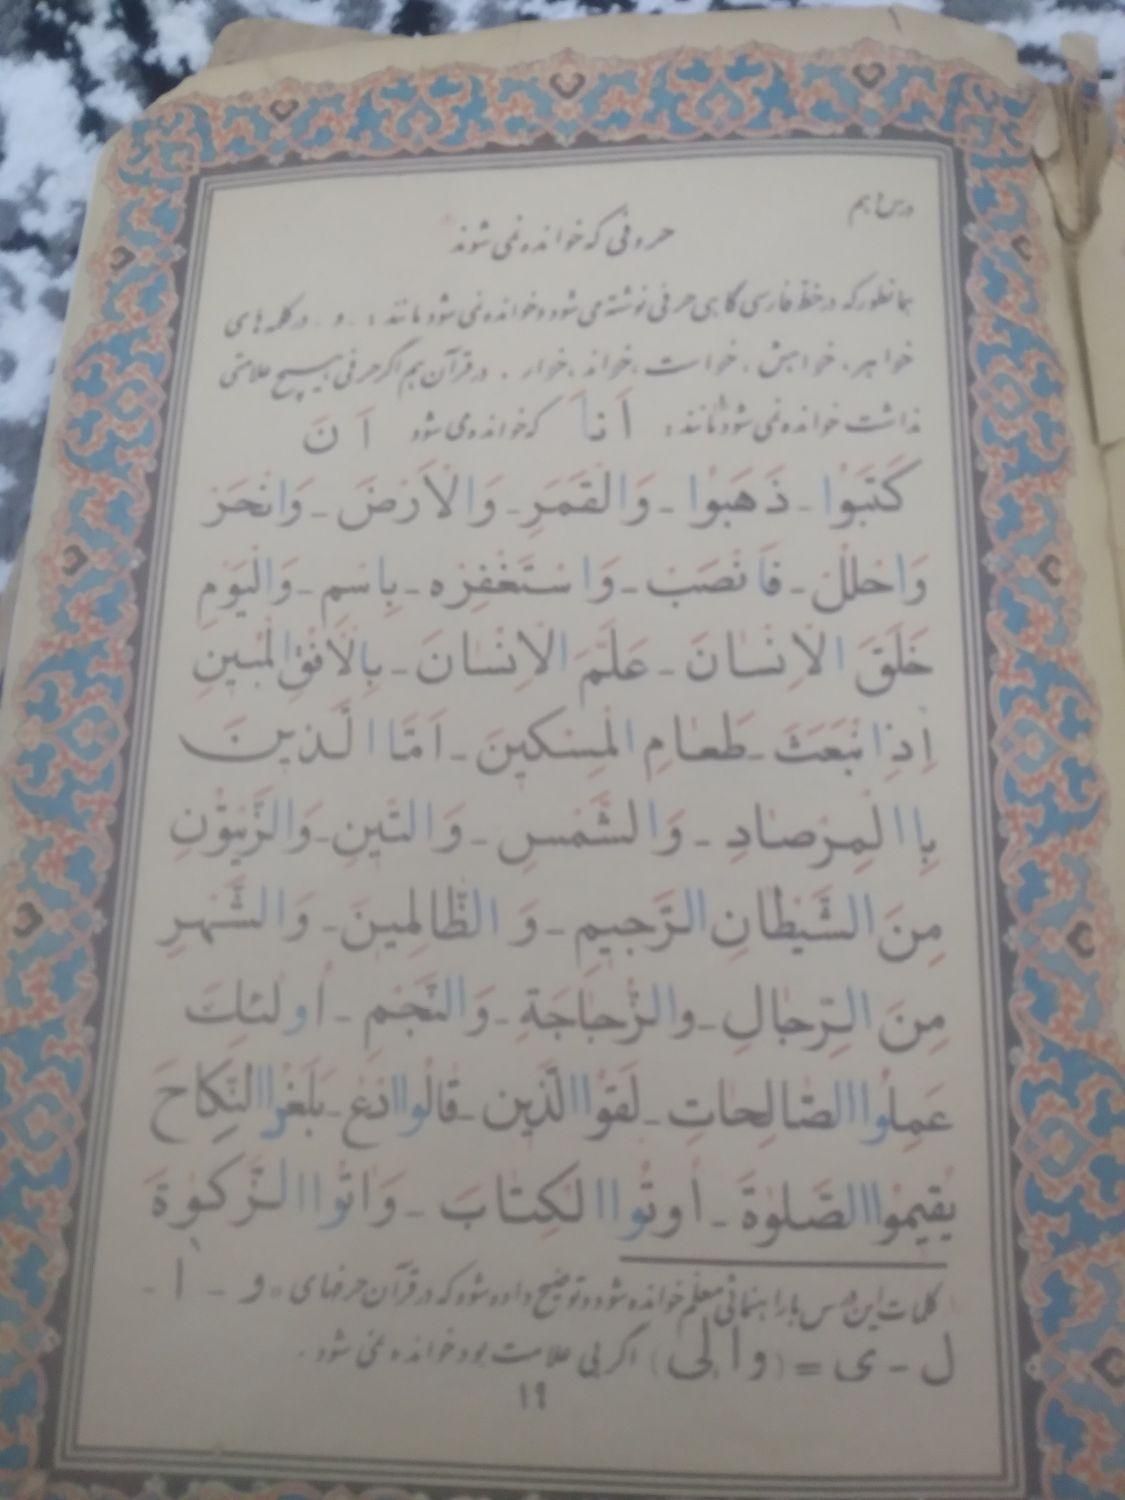 درس دهم
حروفی که خوانده نمی شوند
همانطور که در خط فارسی گاهی حرفی نوشته می شود و خوانده نمی شود مانند : ـ و ـ در کلمه های
خواهر ، خواهش ، خواست ، خواند ، خوار . در قرآن هم اگر حرفی هیچ علامتی
نداشت خوانده نمی شود مانند : اَنَا که خوانده می شود اَ نَ
كَتَبَوُا ـ ذَهَبوُا ـ وَالْقَمَرِ ـ وَالْاَرْضَ ـ وَانْحَرْ
وَاحْلُلْ ـ فَانْصَبْ ـ وَاسْتَغْفِرْه ـ بِاسْمِ ـ وَالْيَوْمِ
خَلَقَ الْاِنْسانَ ـ عَلَّمَ الْاِنْسانَ ـ بِالْاُفُقِ الْمُبينِ
اِذِ انْبَعَثَ ـ طَعامِ الْمِسْكينَ ـ اَمَّا الَّذينَ
بِاالْمِرْصادِ ـ وَالشَّمْسِ ـ وَالتّينِ ـ وَالزَّيْتوُنِ
مِنَ الشَّيْطانِ الرَّجيمِ ـ وَ الظّالِمينَ ـ وَالشَّهْرِ
مِنَ الرِّجالِ ـ والزُّجاجَةِ ـ وَالنَّجْمِ ـ اُولئِكَ
عَمِلوُا الصّالِحاتِ ـ لَقوُا الَّذين ـ قالوُا ادْعُ ـ بَلَغوُا النِّكاحَ
يُقيموُا الصَّلوٰةَ ـ اُوتوُا الْكِتابَ ـ وَاتوُا الزَّكوٰةَ
کلمات این درس با راهنمائی معلم خوانده شود و توضیح داده شود که در قرآن حرفهای « و ـ ا ـ
ل ـ ی = ( والی ) اگر بی علامت بود خوانده نمی شود .
۱۹